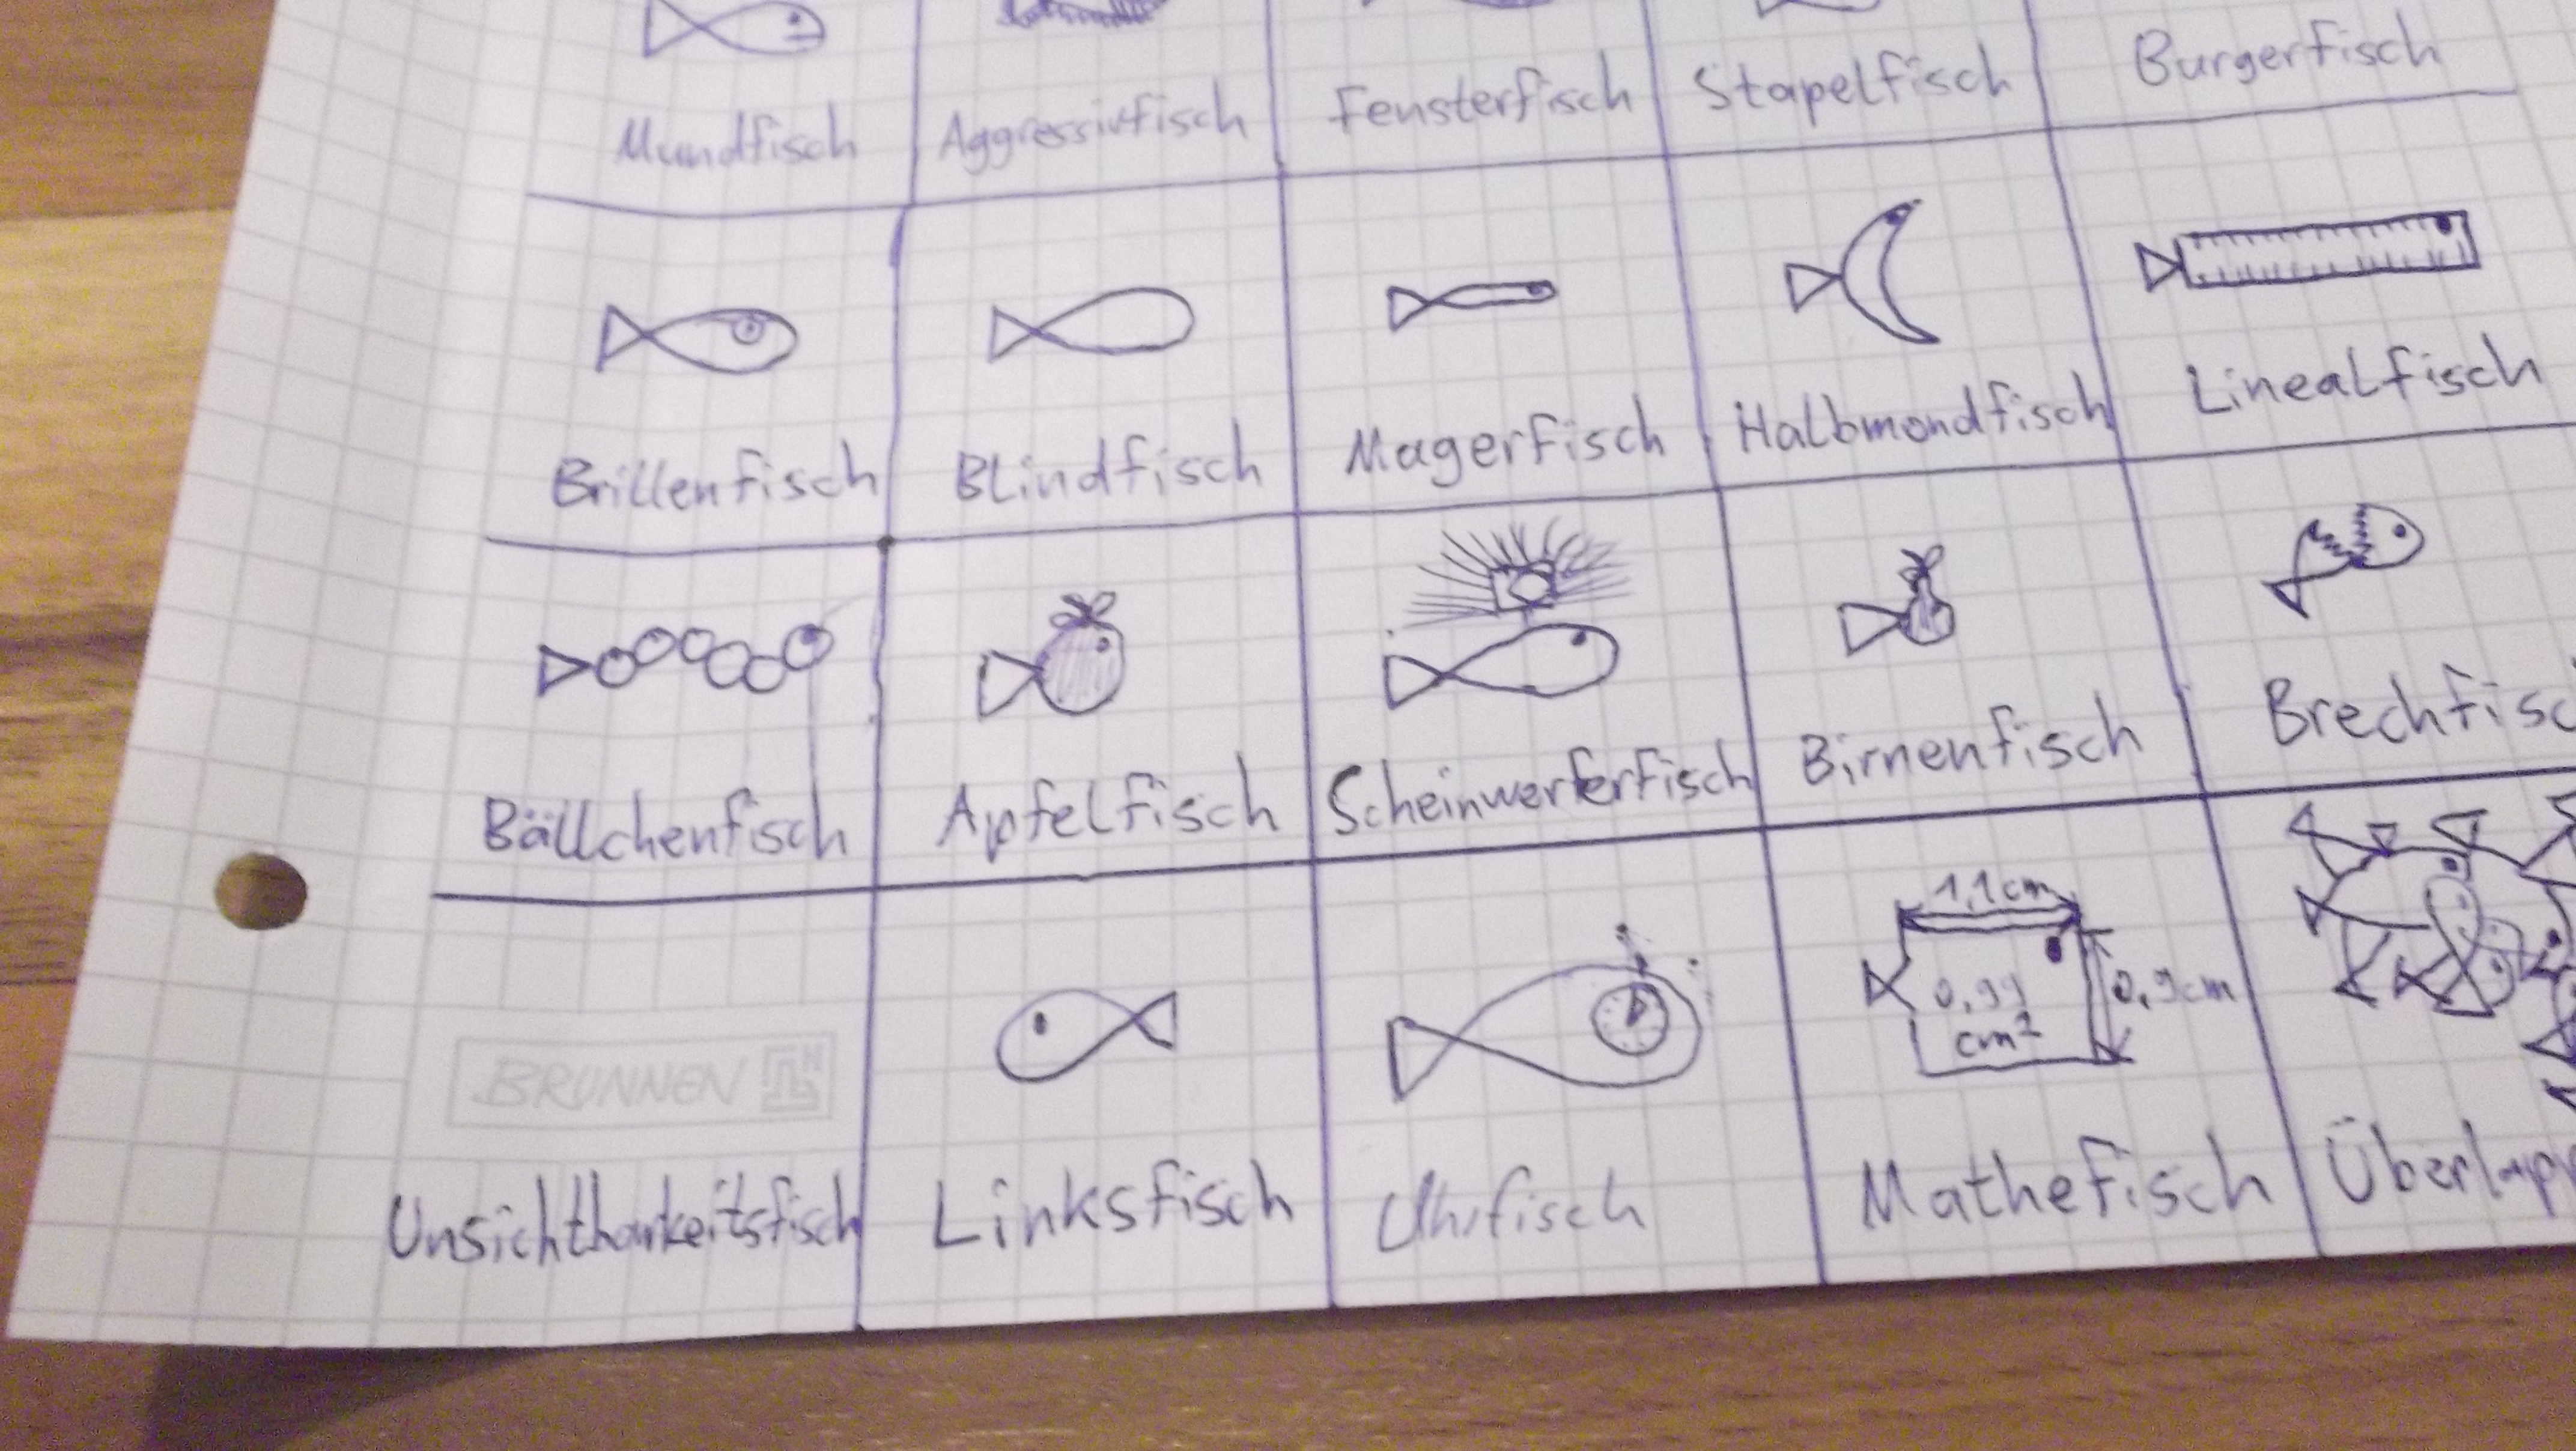 Mundfisch Aggressivfisch Fensterfisch Stapelfisch Burgerfisch
Brillenfisch Blindfisch Magerfisch Halbmondfisch Linealfisch
Bällchenfisch Apfelfisch Scheinwerferfisch Birnenfisch Brechfisc
1,1cm
0,99
0,9cm
cm²
BRUNNEN
Unsichtbarkeitsfisch Linksfisch Uhrfisch Mathefisch Überlapp